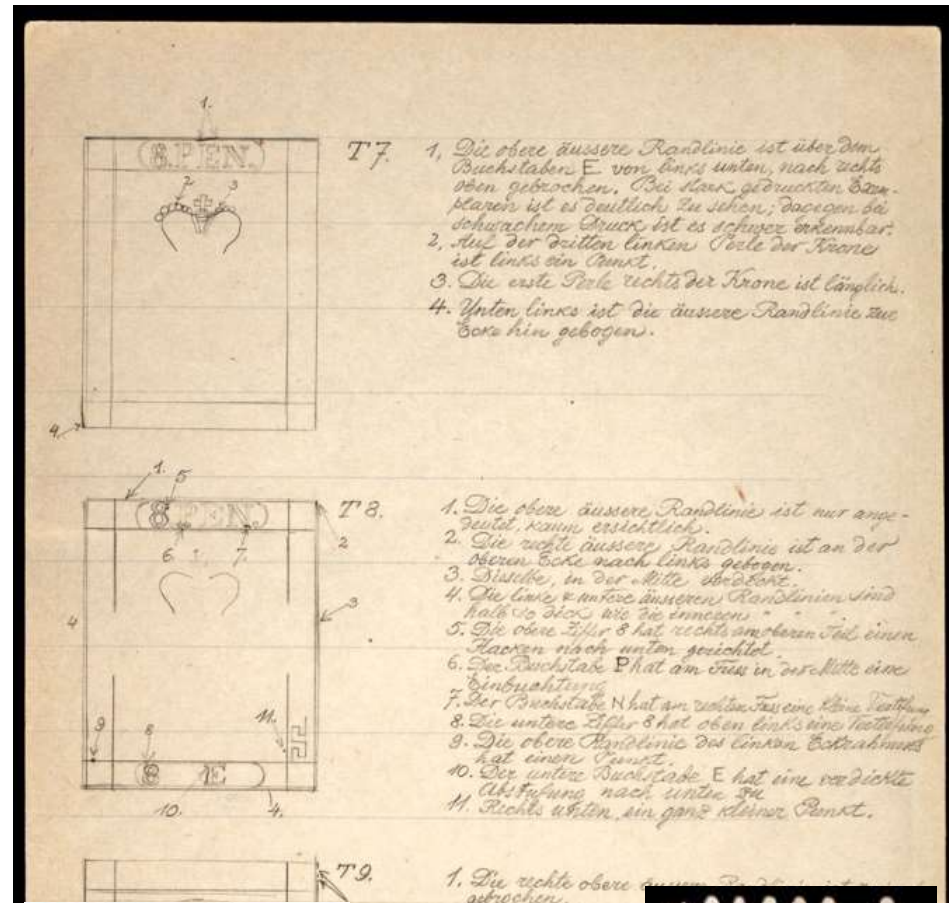 1.
8.PEN.
T 7.
2
3
4
1, Die obere äussere Randlinie ist über dem
Buchstaben E von links unten, nach rechts
oben gebrochen. Bei stark gedruckten Exem-
plaren ist es deutlich zu sehen; dagegen bei
schwachem Druck ist es schwer erkennbar.
2, Auf der dritten linken Perle der Krone
ist links ein Punkt.
3. Die erste Perle rechts der Krone ist länglich.
4. Unten links ist die äussere Randlinie zur
Ecke hin gebogen.
1.
5
8 PEN.
T 8.
6
7.
2
3
4
11.
9
8
8 E
10.
4.
1. Die obere äussere Randlinie ist nur ange-
deutet, kaum ersichtlich.
2. Die rechte äussere Randlinie ist an der
oberen Ecke nach links gebogen.
3. Dieselbe, in der Mitte verdickt.
4. Die linke & untere äusseren Randlinien sind
halb so dick wie die inneren " "
5. Die obere Ziffer 8 hat rechts am oberen Teil einen
Hacken nach unten gerichtet.
6. Der Buchstabe P hat am Fuss in der Mitte eine
Einbuchtung
7. Der Buchstabe N hat am rechten Fuss eine kleine
8. Die untere Ziffer 8 hat oben links eine
9. Die obere Randlinie des linken Eckrahmens
hat einen Punkt.
10. Der untere Buchstabe E hat eine verdickte
Abstufung nach unten zu
11. Rechts unten, ein ganz kleiner Punkt.
T 9.
1. Die rechte obere
gebrochen.